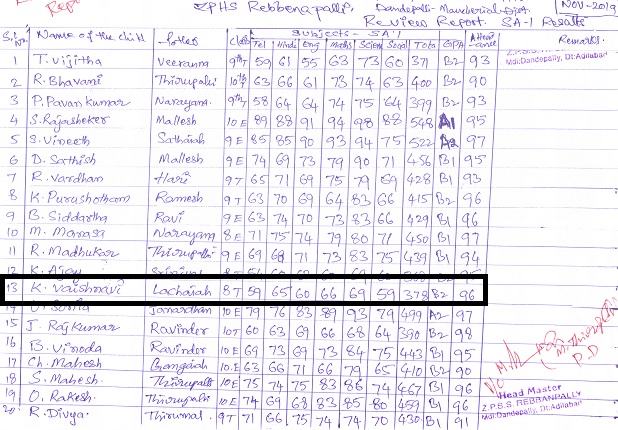 ZPHS Rebbenapalli, Dandepalli - Mancherial-Dist. NOV-2019
Review Report. SA-1 Results
Subjects - SA-1
S.No Name of the child Father Class Tel Hindi Eng Maths Scien Social Total GPA Attendance Remarks.
1 T. Vijitha Veeranna 9th 59 61 55 63 73 60 371 B2 93
Z.P.S.S. REBBANPALLY
Mdl:Dandepally, Dt:Adilabad
2 R. Bhavani Thirupathi 10th 63 66 61 73 74 63 400 B2 90
3 P. Pavan kumar Narayana. 9th 58 64 64 74 75 64 399 B2 93
4 S. Rajasheker Mallesh 10 E 89 88 91 94 98 88 548 A1 95
5 S. Vineeth Sathaiah 9 E 85 85 90 93 94 75 522 A2 97
6 D. Sathish Mallesh 9 E 74 69 73 79 90 71 456 B1 95
7 R. Vardhan Hari 9 T 65 71 69 75 79 69 428 B1 93
8 K. Purushotham Ramesh 9 T 63 70 69 64 83 66 415 B2 96
9 B. Siddartha Ravi 9 E 63 74 70 73 83 66 429 B1 96
10 M. Manasa Narayana 8 E 71 75 74 79 80 71 450 B1 97
11 R. Madhukar Thirupathi 9 E 69 68 71 73 83 75 439 B1 94
12 K. Ajay
13 K. Vaishnavi Lachaiah 8 T 59 65 60 66 69 59 378 B2 96
Sonia Janardhan 10 E 79 76 83 89 93 79 499 A2 97
15 J. Raj Kumar Ravinder 10T 60 63 69 66 68 64 390 B2 98
16 B. Vinoda Ravinder 10 E 69 73 69 73 84 75 443 B1 95
17 Ch. Mahesh Gangaiah 10 E 63 66 71 66 79 65 410 B2 90
18 S. Mahesh. Thirupathi 10 E 75 74 75 83 86 74 467 B1 96
19 O. Rakesh. Thirupathi 10 E 74 69 68 83 85 80 459 B1 96
20 R. Divya. Thirumal 9T 71 66 75 74 74 70 430 B1 91
P.D
Head Master
Z.P.S.S. REBBANPALLY
Mdl:Dandepally, Dt:Adilabad